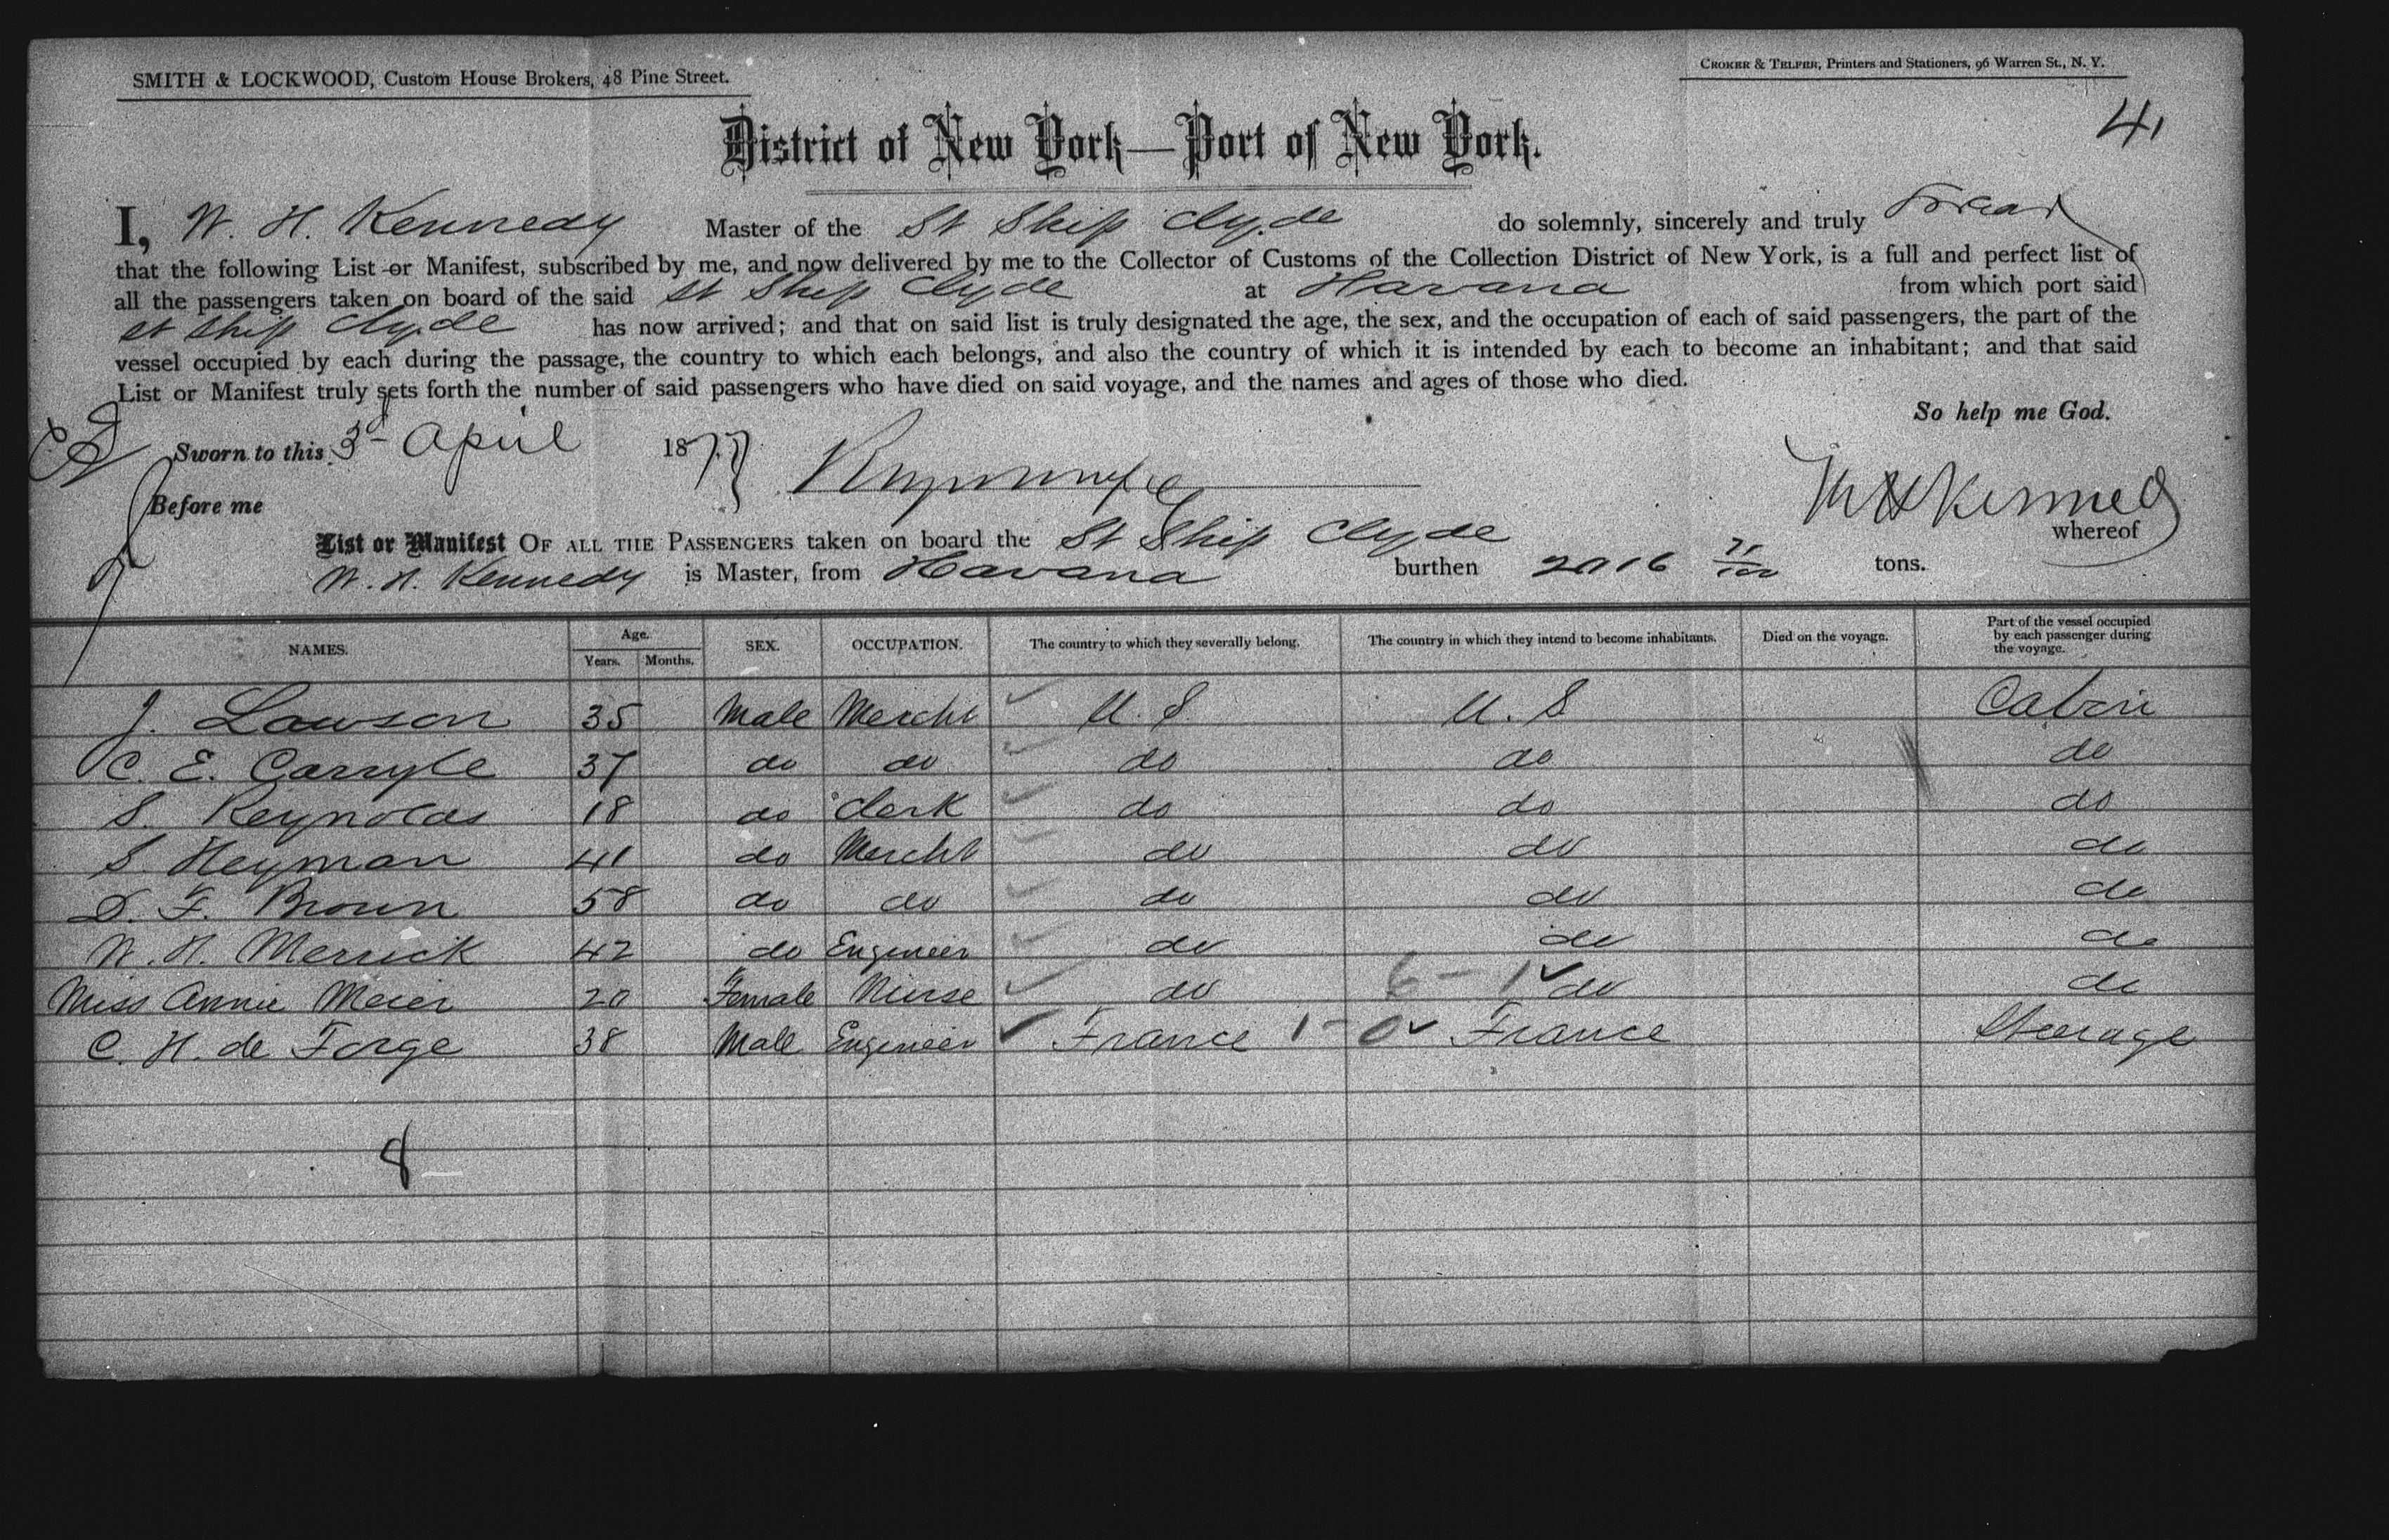 SMITH & LOCKWOOD, Custom House Brokers, 48 Pine Street.
CROKER & TELFER, Printers and Stationers, 96 Warren St., N. Y.
41
District of New York—Port of New York.
I, W. H. Kennedy Master of the St Ship Clyde do solemnly, sincerely and truly swear
that the following List or Manifest, subscribed by me, and now delivered by me to the Collector of Customs of the Collection District of New York, is a full and perfect list of
all the passengers taken on board of the said St Ship Clyde at Havana from which port said
St Ship Clyde has now arrived; and that on said list is truly designated the age, the sex, and the occupation of each of said passengers, the part of the
vessel occupied by each during the passage, the country to which each belongs, and also the country of which it is intended by each to become an inhabitant; and that said
List or Manifest truly sets forth the number of said passengers who have died on said voyage, and the names and ages of those who died.
So help me God.
Sworn to this 3d April 1877
W H Kennedy
Before me
List or Manifest OF ALL THE PASSENGERS taken on board the St Ship Clyde whereof
W. H. Kennedy is Master, from Havana burthen 2016 71/100 tons.
NAMES. Age. Years. Months. SEX. OCCUPATION. The country to which they severally belong. The country in which they intend to become inhabitants. Died on the voyage. Part of the vessel occupied by each passenger during the voyage.
J. Lawson 35 Male Mercht U. S U. S Cabin
C. E. Carryle 37 do do do do do
S. Reynolds 18 do Clerk do do do
S. Heyman 41 do Mercht do do do
D. F. Brown 58 do do do do do
W. H. Merrick 42 do Engineer do do do
Miss Annie Meier 20 Female Nurse do 6 - 1 do do
C. H. de Forge 38 Male Engineer France 1 - 0 France Steerage
8